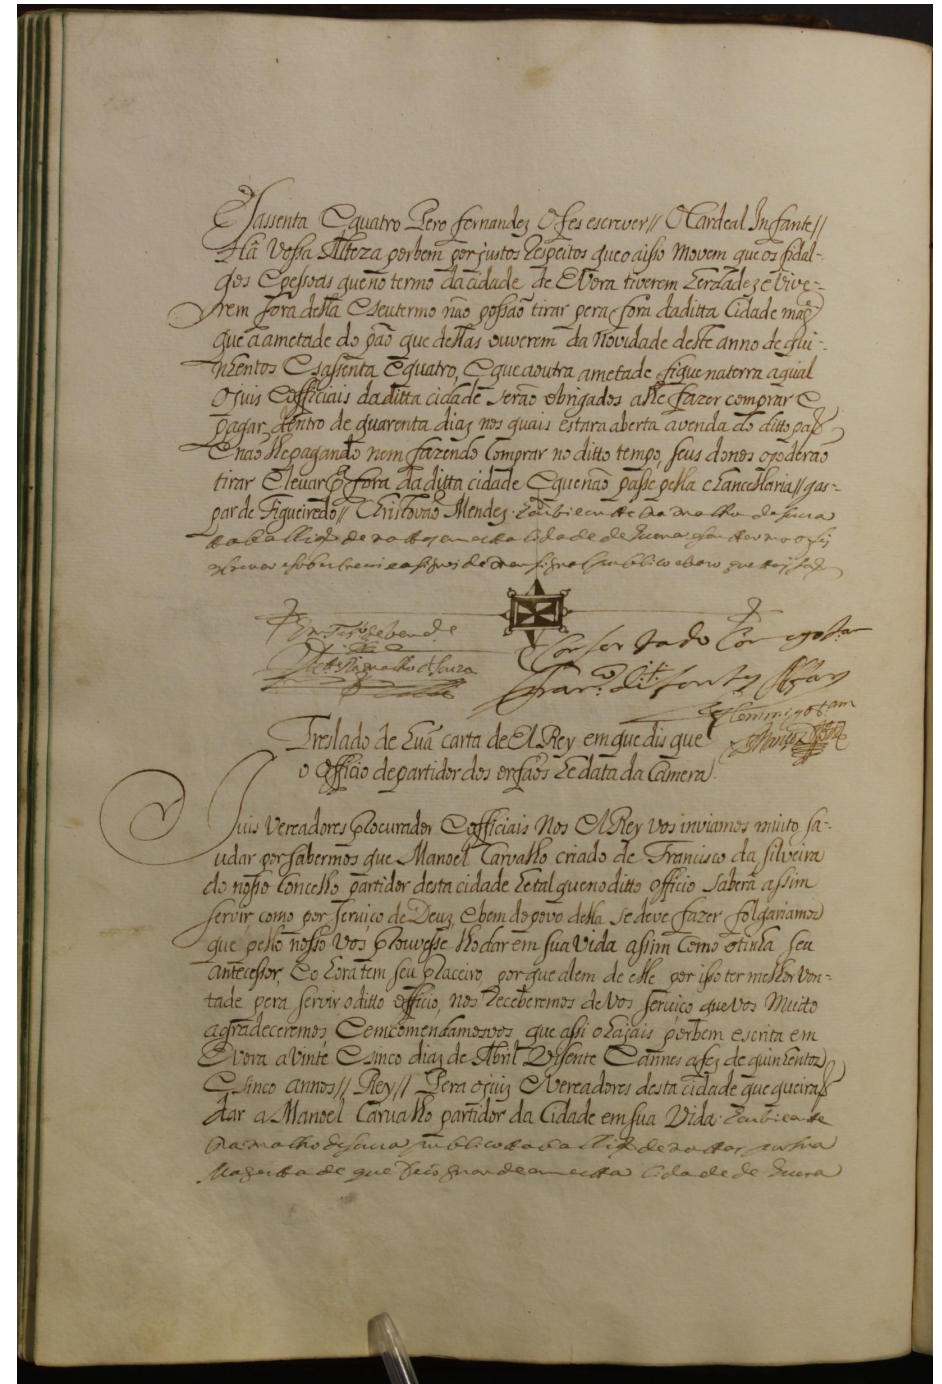 E sassenta E quatro Pero fernandez O fes escrever// O Cardeal Infante//
Ha Vossa Alteza por bem por justos Respeitos que o a isso Movem que os fidal-
gos E pessoas que no termo da cidade de Evora tiverem herdadez e vive-
rem fora della E seu termo não possão tirar pera fora da ditta Cidade mais
que a ametade do pão que dellas ouverem da Novidade deste anno de qui-
nhentos E sassenta E quatro, E que a outra ametade fique na terra a qual
o juis E officiais da ditta cidade serão obrigados a lhe fazer comprar E
pagar dentro de quarenta diaz nos quais estara aberta a venda do ditto pão
E não lhe pagando nem fazendo Comprar no ditto tempo, seus donos o poderão
tirar E levar fora da ditta cidade E que não passe pella chancellaria// gas-
par de Figueiredo// Christovão Mendez. E eu Vicente Ramalho de souza
taballião de nottas em esta Cidade de Evora
Consertado Comigo
Treslado de huã carta de El Rey em que dis que
o Officio de partidor dos orfãos he data da Camera.
Juis Vereadores Procurador E officiais Nos El Rey vos inviamos muito sa-
udar por sabermos que Manoel Carvalho criado de Francisco da silveira
do nosso Concelho partidor desta cidade he tal que no ditto officio saberà assim
servir como por serviço de Deuz, E bem do povo della se deve fazer folgariamos
que pello nosso vos Prouvesse lho dar em sua Vida assim Como o tinha seu
antecessor, E o hora tem seu Parceiro, por que alem de elle por isso ter melhor von-
tade pera servir o ditto officio, nos Receberemos de vos serviço que vos Muito
agradeceremos, E emcomendamosvos que assi o hajais por bem escrita em
Evora a vinte E sinco diaz de Abril Vicente Carnes a fez de quinhentos
E sinco annos// Rey// Pera o juiz E Vereadores desta cidade que queirão
dar a Manoel Carvalho partidor da Cidade em sua Vida. E eu Vicente
Ramalho de souza publico taballião de nottas por sua
Magestade que Deos guarde em esta Cidade de Evora